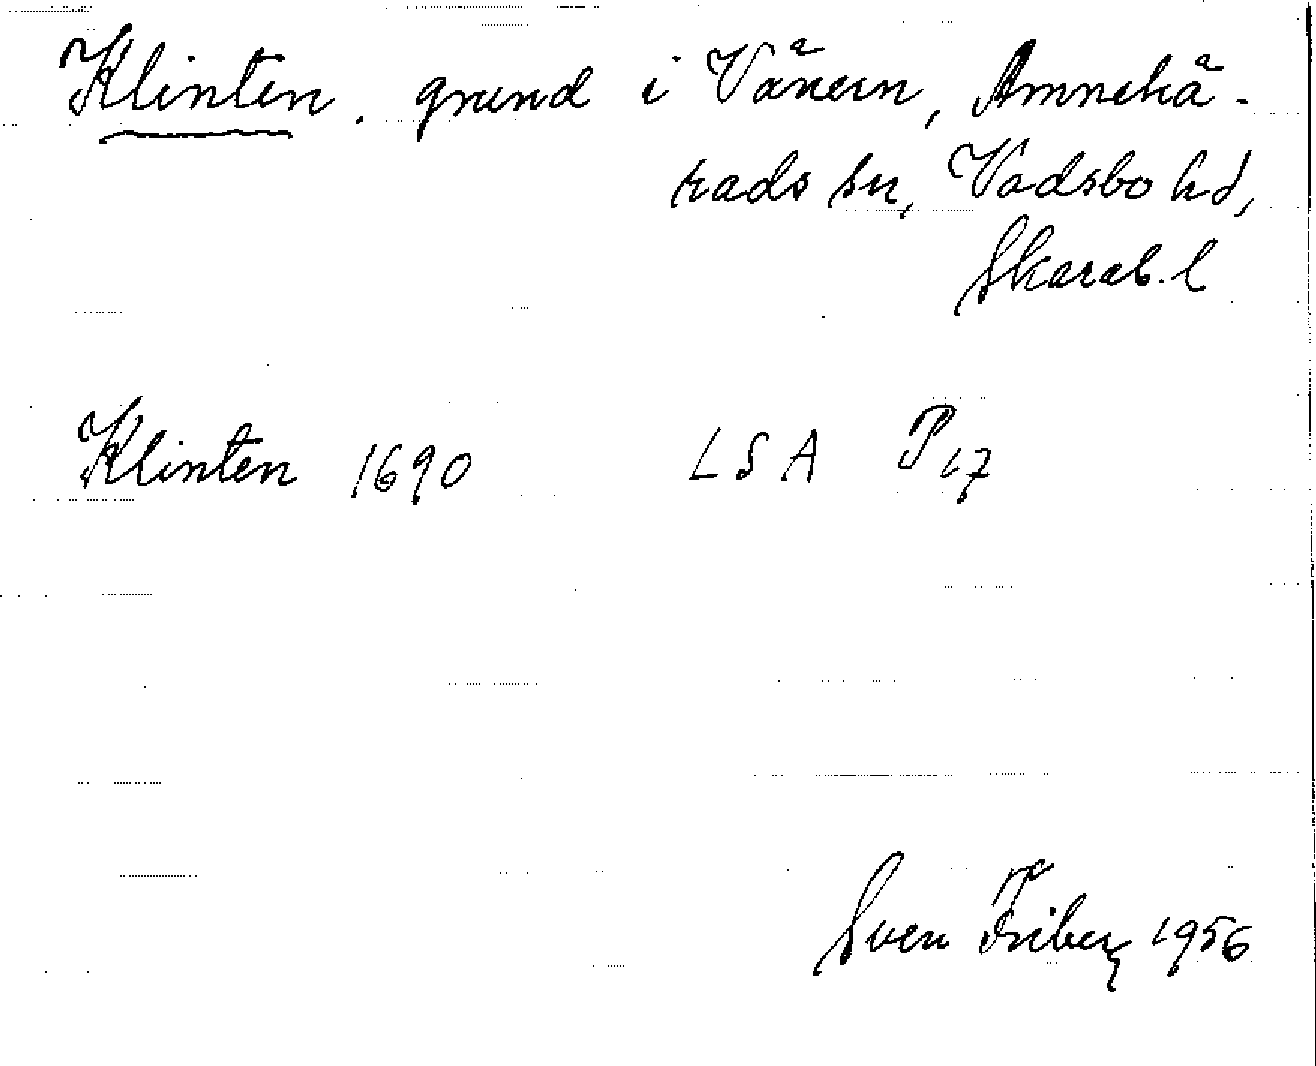 Klinten. grund i Vänern, Amnehä-
rads sn, Vadsbo hd,
Skarab. l
Klinten 1690 LSA P17
Sven Friberg 1956